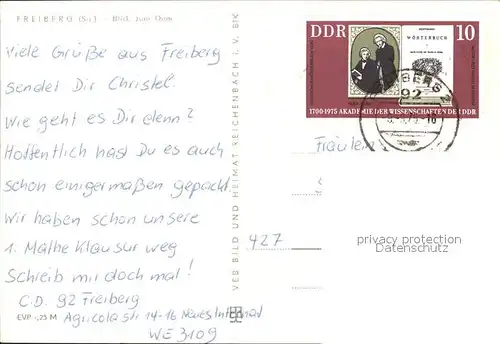 FREIBERG (Sa.) Blick zum Dom
Viele Grüße aus Freiberg
sendet Dir Christel.
Wie geht es Dir denn?
Hoffentlich hast Du es auch
schon einigermaßen gepackt
Wir haben schon unsere
1. Mathe Klausur weg
Schreib mir doch mal!
C.D. 92 Freiberg
Agricolastr 14-16 Neues Internat
WE 3109
EVP -,25 M
VEB BILD UND HEIMAT REICHENBACH i. V. BIK
DDR
10
WÖRTERBUCH
1700-1975 AKADEMIE DER WISSENSCHAFTEN DER DDR
92
Fräulein
427
privacy protection
Datenschutz